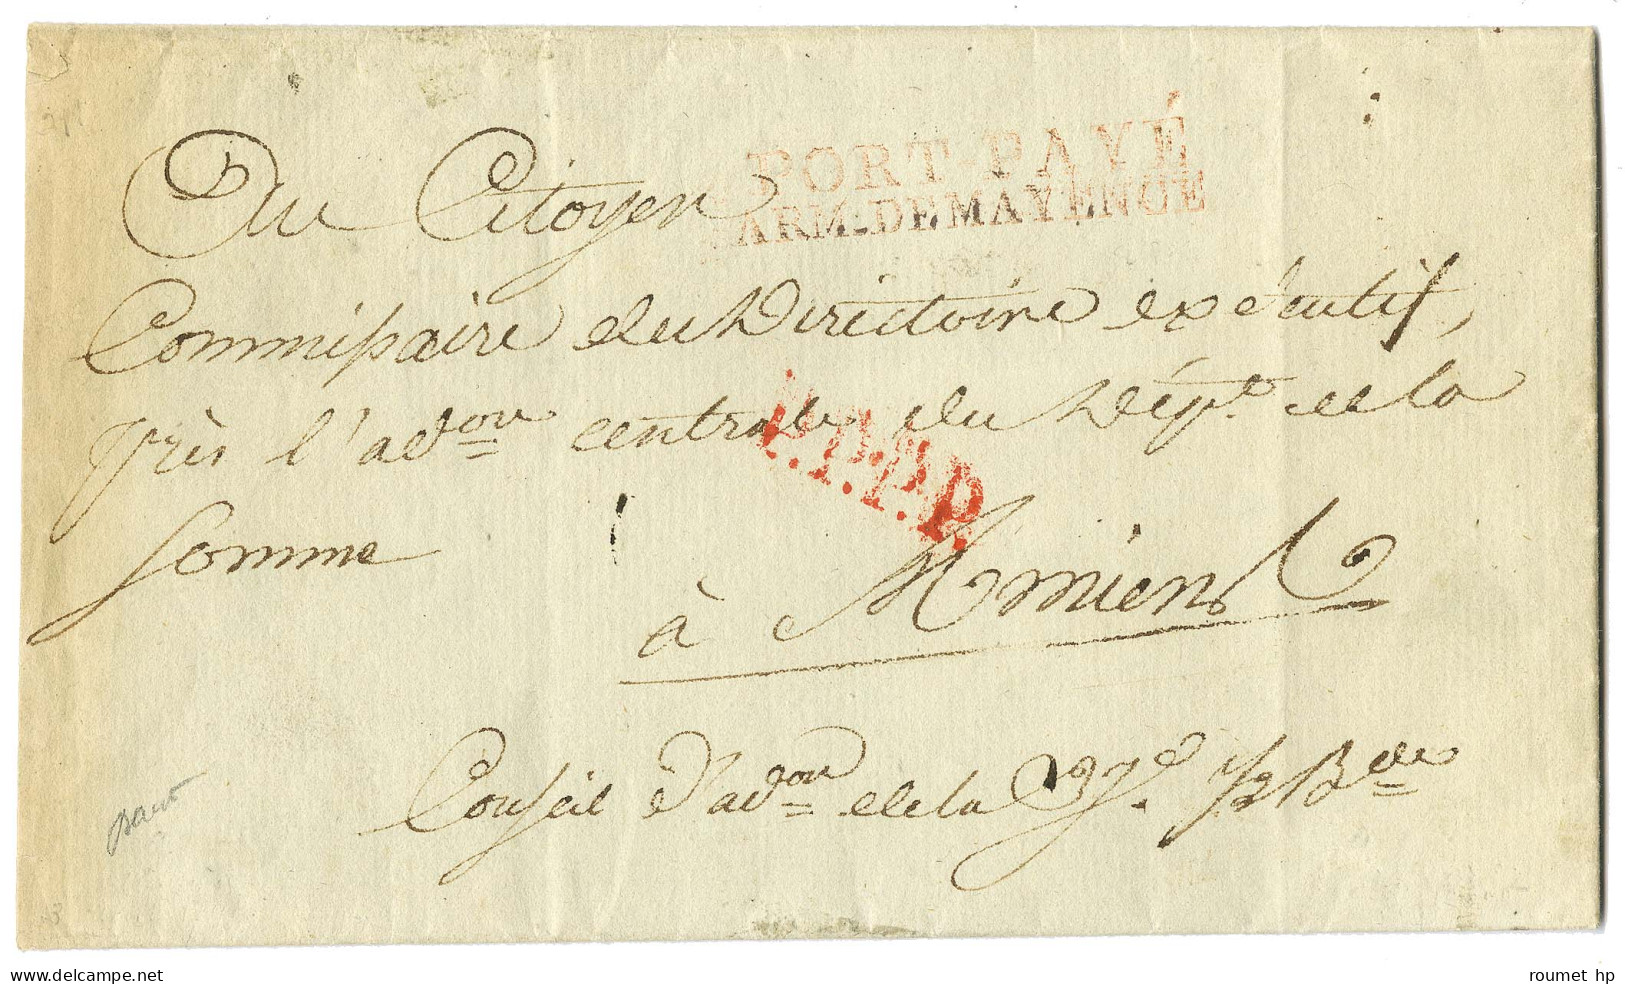 PORT PAYÉ
ARM. DE MAYENCE
Au Citoyen
Commissaire du Directoire exécutif,
près l'adon centrale du Dépt. de la
Somme
P.P.P.P.
à Amiens
Conseil d'adon de la 37e 1/2 Bde
roumet hp